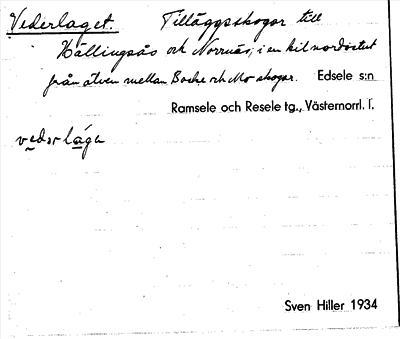 Vederlaget. Tilläggsskogar till
Hällingsås och Norrnäs; i en kil nordostut
från älven mellan Backe och Mo skogar. Edsele s:n
Ramsele och Resele tg., Västernorrl. l.
vederlága
Sven Hiller 1934